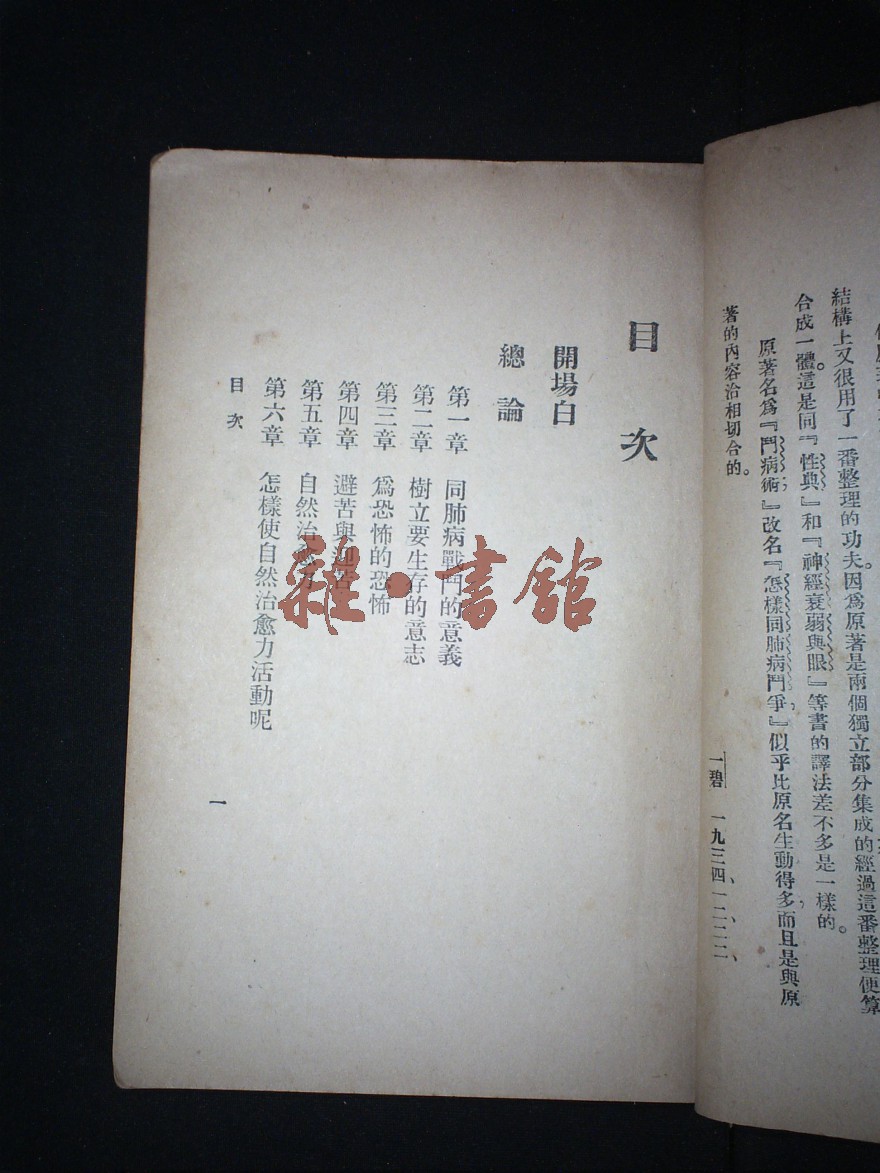 結構上又很用了一番整理的功夫。因為原著是兩個獨立部分集成的經過這番整理便算
合成一體。這是同『性典』和『神經衰弱與眼』等書的譯法差不多是一樣的。
原著名爲『鬥病術』，改名『怎樣同肺病鬥爭』，似乎比原名生動得多，而且是與原
著的內容洽相切合的。
一碧 一九三四、一二、二二、
目次
開場白
總論
第一章 同肺病戰鬥的意義
第二章 樹立要生存的意志
第三章 爲恐怖的恐怖
第四章 避苦與迎苦
第五章 自然治愈力
第六章 怎樣使自然治愈力活動呢
目次
一
雜·書館